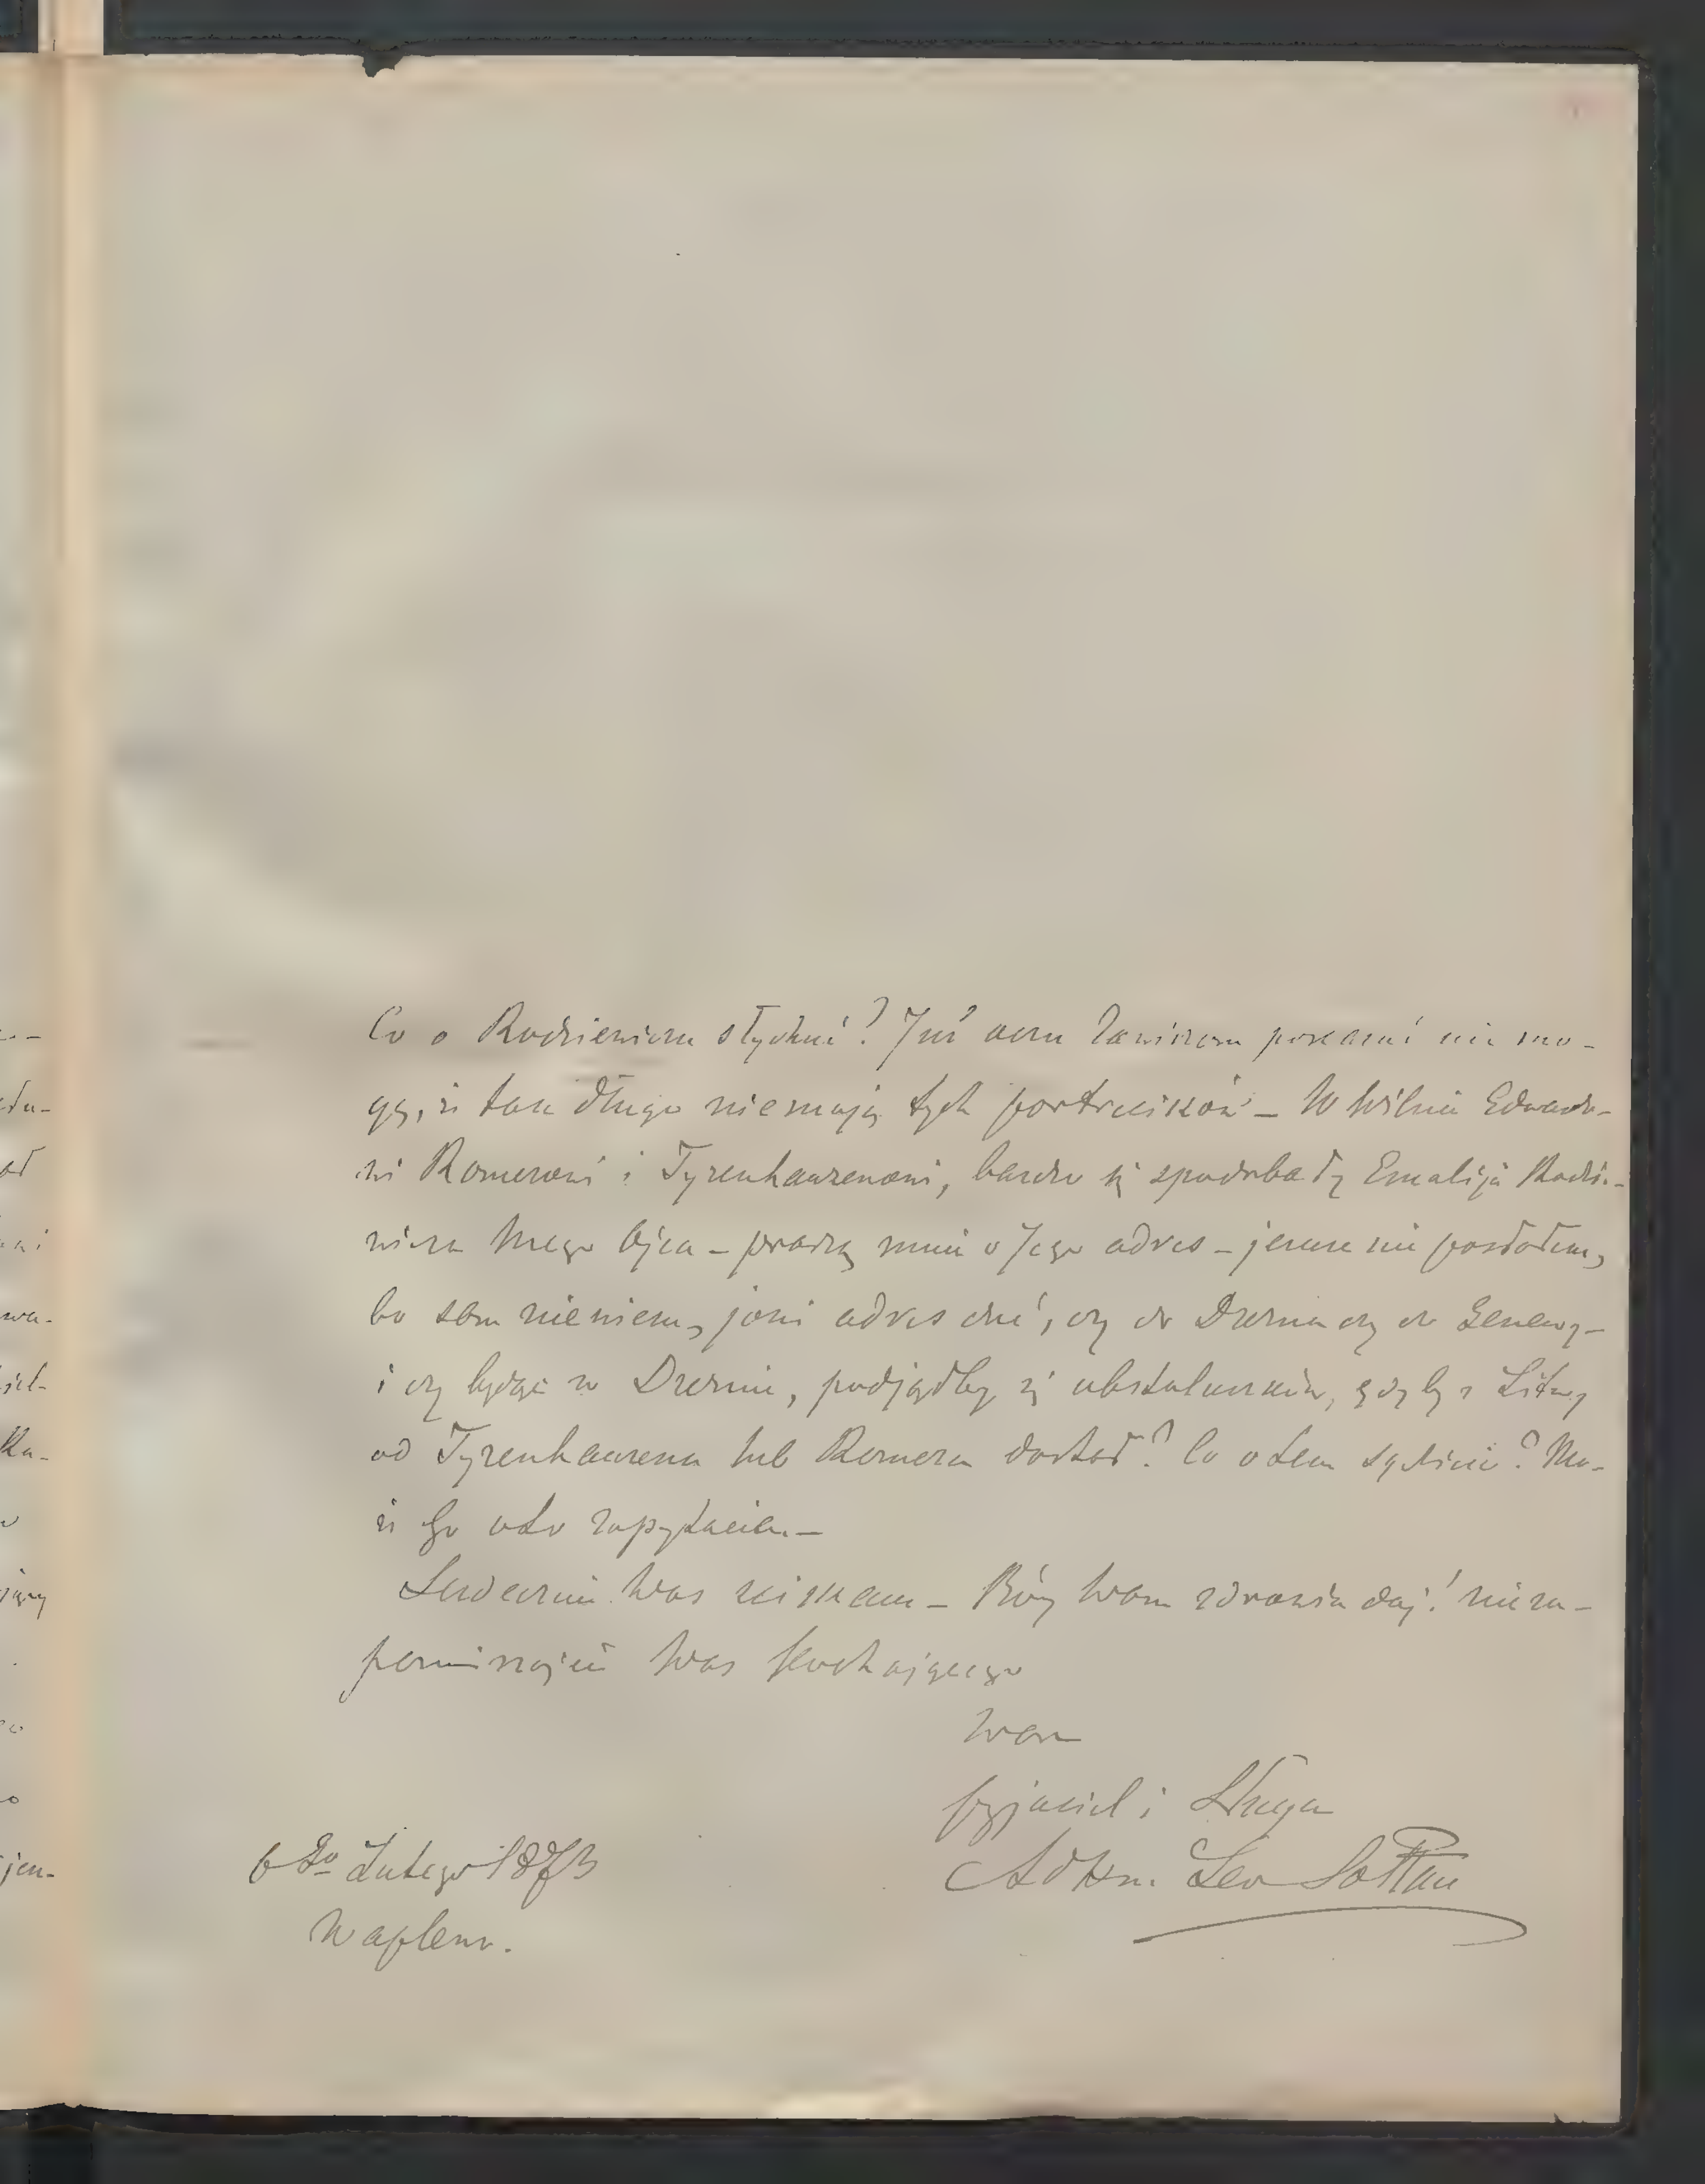 Co o Rodziewiczu słychać? Już oczu Zawiszom pokazać nie mo-
gę, że tak długo niemają tych portrecików – W Wilnie Edwardo-
wi Römerowi i Tyzenhauzenowi, bardzo się spodobały Emalija Rodzie-
wicza Mego Ojca – proszą mnie o Jego adres – jeszcze nie posłałem,
bo sam niewiem, jaki adres dać, czy do Drezna czy do Genewy –
i czy będąc w Dreznie, podjąłby się obstalunków, gdyby z Litwy
od Tyzenhauzena lub Römera dostał? Co o tem sądzicie? Mo-
że Go oto zapytacie. –
Serdecznie Was ściskam – Bóg Wam zdrowia daj! nieza-
pominajcie Was kochającego
Wam
przyjaciel i Sługa
Adam Leo Sołtan
6go Lutego 1873
Waplewo.